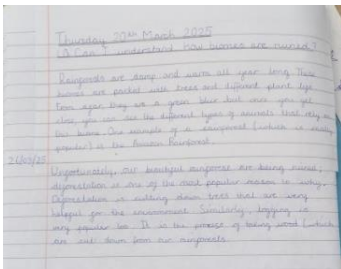 Thursday 20th March 2025
LQ Can I understand how biomes are ruined?
Rainforests are damp and warm all year long. These
biomes are packed with trees and different plant life.
From afar they are a green blur but once you get
close, you can see the different types of animals that rely on
this biome. One example of a rainforest (which is really
popular) is the Amazon Rainforest.
21/03/25
Unfortunately, our beautiful rainforests are being ruined;
deforestation is one of the most popular reason in why.
Deforestation is cutting down trees that are very
helpful for the environment. Similarly, logging is
very popular too. It is the process of taking wood (which
are cut down from our rainforests